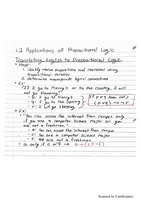 1.2 Applications of Propositional Logic
Translating English to Propositional Logic
• Steps:
1. Identify atomic propositions and represent using
propositional variables
2. Determine appropriate logical connectives
• Ex:
"If I go to Harry's or to the country, I will
not go shopping."
- p: I go to Harry's
- q: I go to the country
- r: I will go shopping
If p or q then not r
(p ∨ q) → ¬r
• Ex:
"You can access the internet from campus only
if you are a computer science major or you
are not a freshman."
- a: You can access the internet from campus
- c: You are a computer science major
- f: You are a freshman
• a only if c or ¬f → a → (c ∨ ¬f)
Scanned by CamScanner